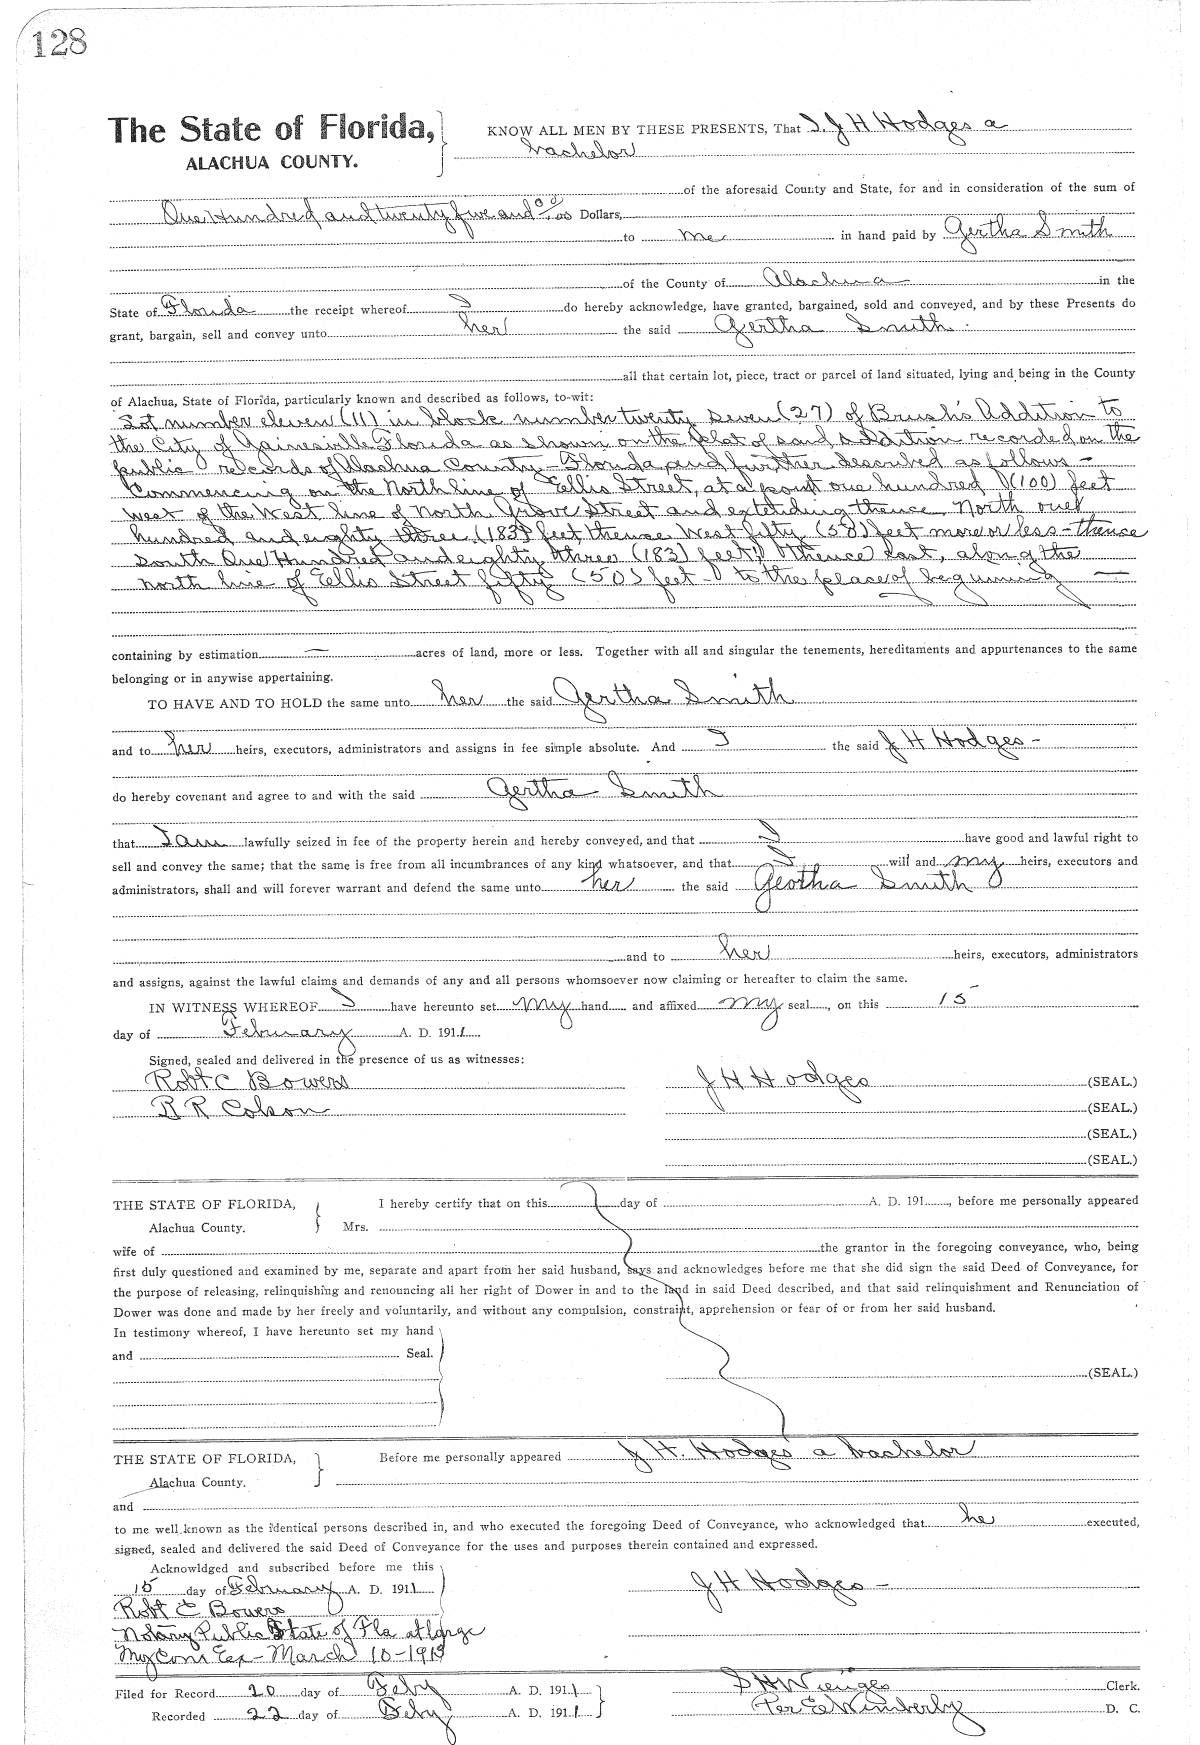 128
The State of Florida, KNOW ALL MEN BY THESE PRESENTS, That I, J H Hodges a
ALACHUA COUNTY. bachelor
of the aforesaid County and State, for and in consideration of the sum of
One Hundred and twenty five and 00/100 Dollars,
to me in hand paid by Gertha Smith
of the County of Alachua in the
State of Florida the receipt whereof I do hereby acknowledge, have granted, bargained, sold and conveyed, and by these Presents do
grant, bargain, sell and convey unto her the said Gertha Smith
all that certain lot, piece, tract or parcel of land situated, lying and being in the County
of Alachua, State of Florida, particularly known and described as follows, to-wit:
Lot number eleven (11) in block number twenty seven (27) of Brush's Addition to
the City of Gainesville Florida as shown on the plat of said addition recorded on the
public records of Alachua County - Florida and further described as follows -
Commencing on the North line of Ellis Street, at a point one hundred (100) feet
West of the West line of North Grove Street and extending thence North one
hundred and eighty three (183) feet thence West fifty (50) feet more or less - thence
South One Hundred and eighty three (183) feet, thence East, along the
north line of Ellis Street fifty (50) feet - to the place of beginning —
containing by estimation — acres of land, more or less. Together with all and singular the tenements, hereditaments and appurtenances to the same
belonging or in anywise appertaining.
TO HAVE AND TO HOLD the same unto her the said Gertha Smith
and to her heirs, executors, administrators and assigns in fee simple absolute. And I the said J H Hodges -
do hereby covenant and agree to and with the said Gertha Smith
that I am lawfully seized in fee of the property herein and hereby conveyed, and that I have good and lawful right to
sell and convey the same; that the same is free from all incumbrances of any kind whatsoever, and that I will and my heirs, executors and
administrators, shall and will forever warrant and defend the same unto her the said Geotha Smith
and to her heirs, executors, administrators
and assigns, against the lawful claims and demands of any and all persons whomsoever now claiming or hereafter to claim the same.
IN WITNESS WHEREOF I have hereunto set my hand and affixed my seal, on this 15
day of February A. D. 1911.
Signed, sealed and delivered in the presence of us as witnesses:
Robt C Bowers J H Hodges (SEAL.)
B R Colson (SEAL.)
(SEAL.)
(SEAL.)
THE STATE OF FLORIDA, I hereby certify that on this day of A. D. 191 , before me personally appeared
Alachua County. Mrs.
wife of the grantor in the foregoing conveyance, who, being
first duly questioned and examined by me, separate and apart from her said husband, says and acknowledges before me that she did sign the said Deed of Conveyance, for
the purpose of releasing, relinquishing and renouncing all her right of Dower in and to the land in said Deed described, and that said relinquishment and Renunciation of
Dower was done and made by her freely and voluntarily, and without any compulsion, constraint, apprehension or fear of or from her said husband.
In testimony whereof, I have hereunto set my hand
and Seal.
(SEAL.)
THE STATE OF FLORIDA, Before me personally appeared J H. Hodges a bachelor
Alachua County.
and
to me well known as the identical persons described in, and who executed the foregoing Deed of Conveyance, who acknowledged that he executed,
signed, sealed and delivered the said Deed of Conveyance for the uses and purposes therein contained and expressed.
Acknowldged and subscribed before me this
15 day of February A. D. 1911 J H Hodges -
Robt C Bowers
Notary Public State of Fla at large
My Com Exp - March 10 - 1913
Filed for Record 20 day of Feby A. D. 1911 S H Wienges Clerk.
Recorded 22 day of Feby A. D. 1911 Per E Wimberly D. C.